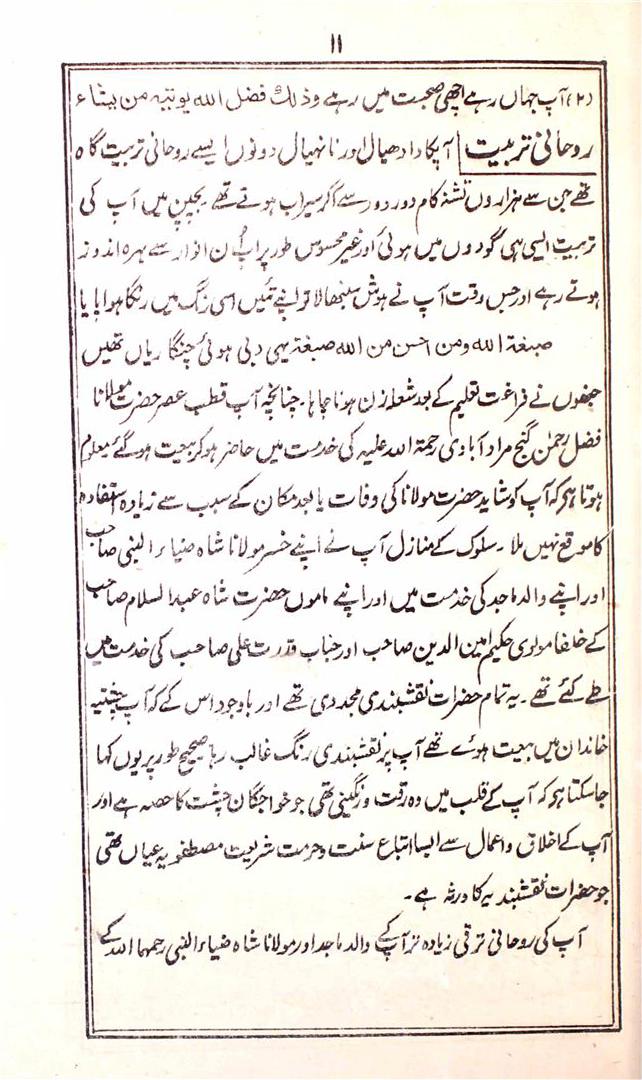 ۱۱
(۲) آپ جہاں رہے اچھی صحبت میں رہے وذلك فضل الله يوتيه من يشاء
روحانی تربیت آپکا دادھیال اور نانھیال دونوں ایسے روحانی تربیت گاہ
تھے جن سے ہزاروں تشنہ کام دور دور سے آکر سیراب ہوتے تھے بچپن میں آپ کی
تربیت ایسی ہی گودوں میں ہوئی اور غیر محسوس طور پر آپ اُن انوار سے بہرہ اندوز
ہوتے رہے اور جس وقت آپ نے ہوش سنبھالا تو اپنے تئیں اسی رنگ میں رنگا ہوا پایا
صبغة الله ومن احسن من الله صبغة یہی دبی ہوئی چنگاریاں تھیں
جنھوں نے فراغت تعلیم کے بعد شعلہ زن ہونا چاہا۔ چنانچہ آپ قطب عصر حضرت مولانا
فضل رحمٰن گنج مرادآبادی رحمۃ اللہ علیہ کی خدمت میں حاضر ہوکر بیعت ہوگئے معلوم
ہوتا ہی کہ آپ کو شاید حضرت مولانا کی وفات یا بعد مکان کے سبب سے زیادہ استفادہ
کا موقع نہیں ملا۔ سلوک کے منازل آپ نے اپنے خسر مولانا شاہ ضیاء النبی صاحب
اور اپنے والد ماجد کی خدمت میں اور اپنے ماموں حضرت شاہ عبدالسلام صاحب
کے خلفا مولوی حکیم امین الدین صاحب اور جناب قدرت علی صاحب کی خدمت میں
طے کئے تھے۔ یہ تمام حضرات نقشبندی مجددی تھے اور باوجود اس کے کہ آپ چشتیہ
خاندان میں بیعت ہوئے تھے آپ پر نقشبندی رنگ غالب رہا صحیح طور پر یوں کہا
جاسکتا ہی کہ آپ کے قلب میں وہ رقت و رنگینی تھی جو خواجگان چشت کا حصہ ہے اور
آپ کے اخلاق و اعمال سے ایسا اتباع سنت و حرمت شریعت مصطفویہ عیاں تھی
جو حضرات نقشبندیہ کا ورثہ ہے۔
آپ کی روحانی ترقی زیادہ تر آپ کے والد ماجد اور مولانا شاہ ضیاء النبی رحمہما اللہ کے